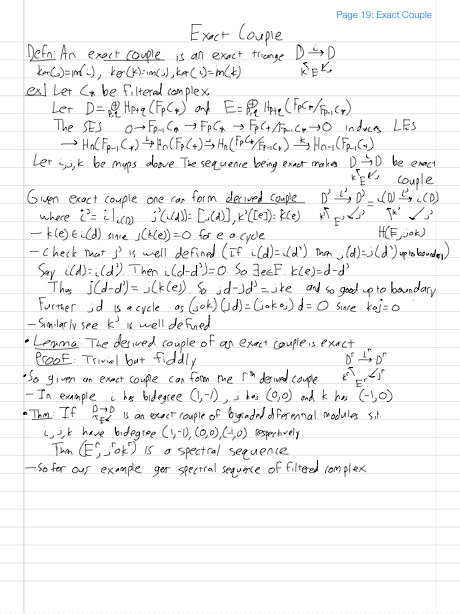 Page 19: Exact Couple
Exact Couple
Defn: An exact couple is an exact triange D →i D
ker(j)=im(i), ker(k)=im(j), ker(i)=im(k) k↖ E ↙j
ex] Let C* be filtered complex
Let D=⊕p,q Hp+q(FpC*) and E=⊕p,q Hp+q(FpC*/Fp-1C*)
The SES 0→Fp-1C*→FpC*→FpC*/Fp-1C*→0 induces LES
→Hn(Fp-1C*)→i Hn(FpC*)→j Hn(FpC*/Fp-1C*)→k Hn-1(Fp-1C*)
Let i,j,k be maps above. The sequence being exact makes D→D be exact
k↖E↙j couple
Given exact couple one can form derived couple D' →i' D' = i(D) →i' i(D)
where i'=i|i(D) j'(i(d))=[j(d)], k'([e])=k(e) k'↖E'↙j' ↖k' ↙j'
– k(e)∈i(d) since j(k(e))=0 for e a cycle H(E, jok)
– Check that j' is well defined (If i(d)=i(d') then j(d)=j(d') up to boundary)
Say i(d)=i(d') Then i(d-d')=0. So ∃e∈E. k(e)=d-d'
Thus j(d-d')=j(k(e)) So jd-jd'=jke and so good up to boundary
Further jd is a cycle as (jok)(jd)=(jokoj)d=0 since koj=0
– Similarly see k' is well defined
• Lemma: The derived couple of an exact couple is exact
Proof: Trivial but fiddly
• So given an exact couple can form the rth derived couple Dr →ir Dr
kr↖ Er ↙jr
– In example i has bidegree (1,-1), j has (0,0) and k has (-1,0)
• Thm: If D→D ↖E↙ is an exact couple of bigraded differential modules s.t.
i,j,k have bidegree (1,-1),(0,0),(-1,0) respectively.
Then (Er, jrokr) is a spectral sequence
– So for our example get spectral sequence of filtered complex